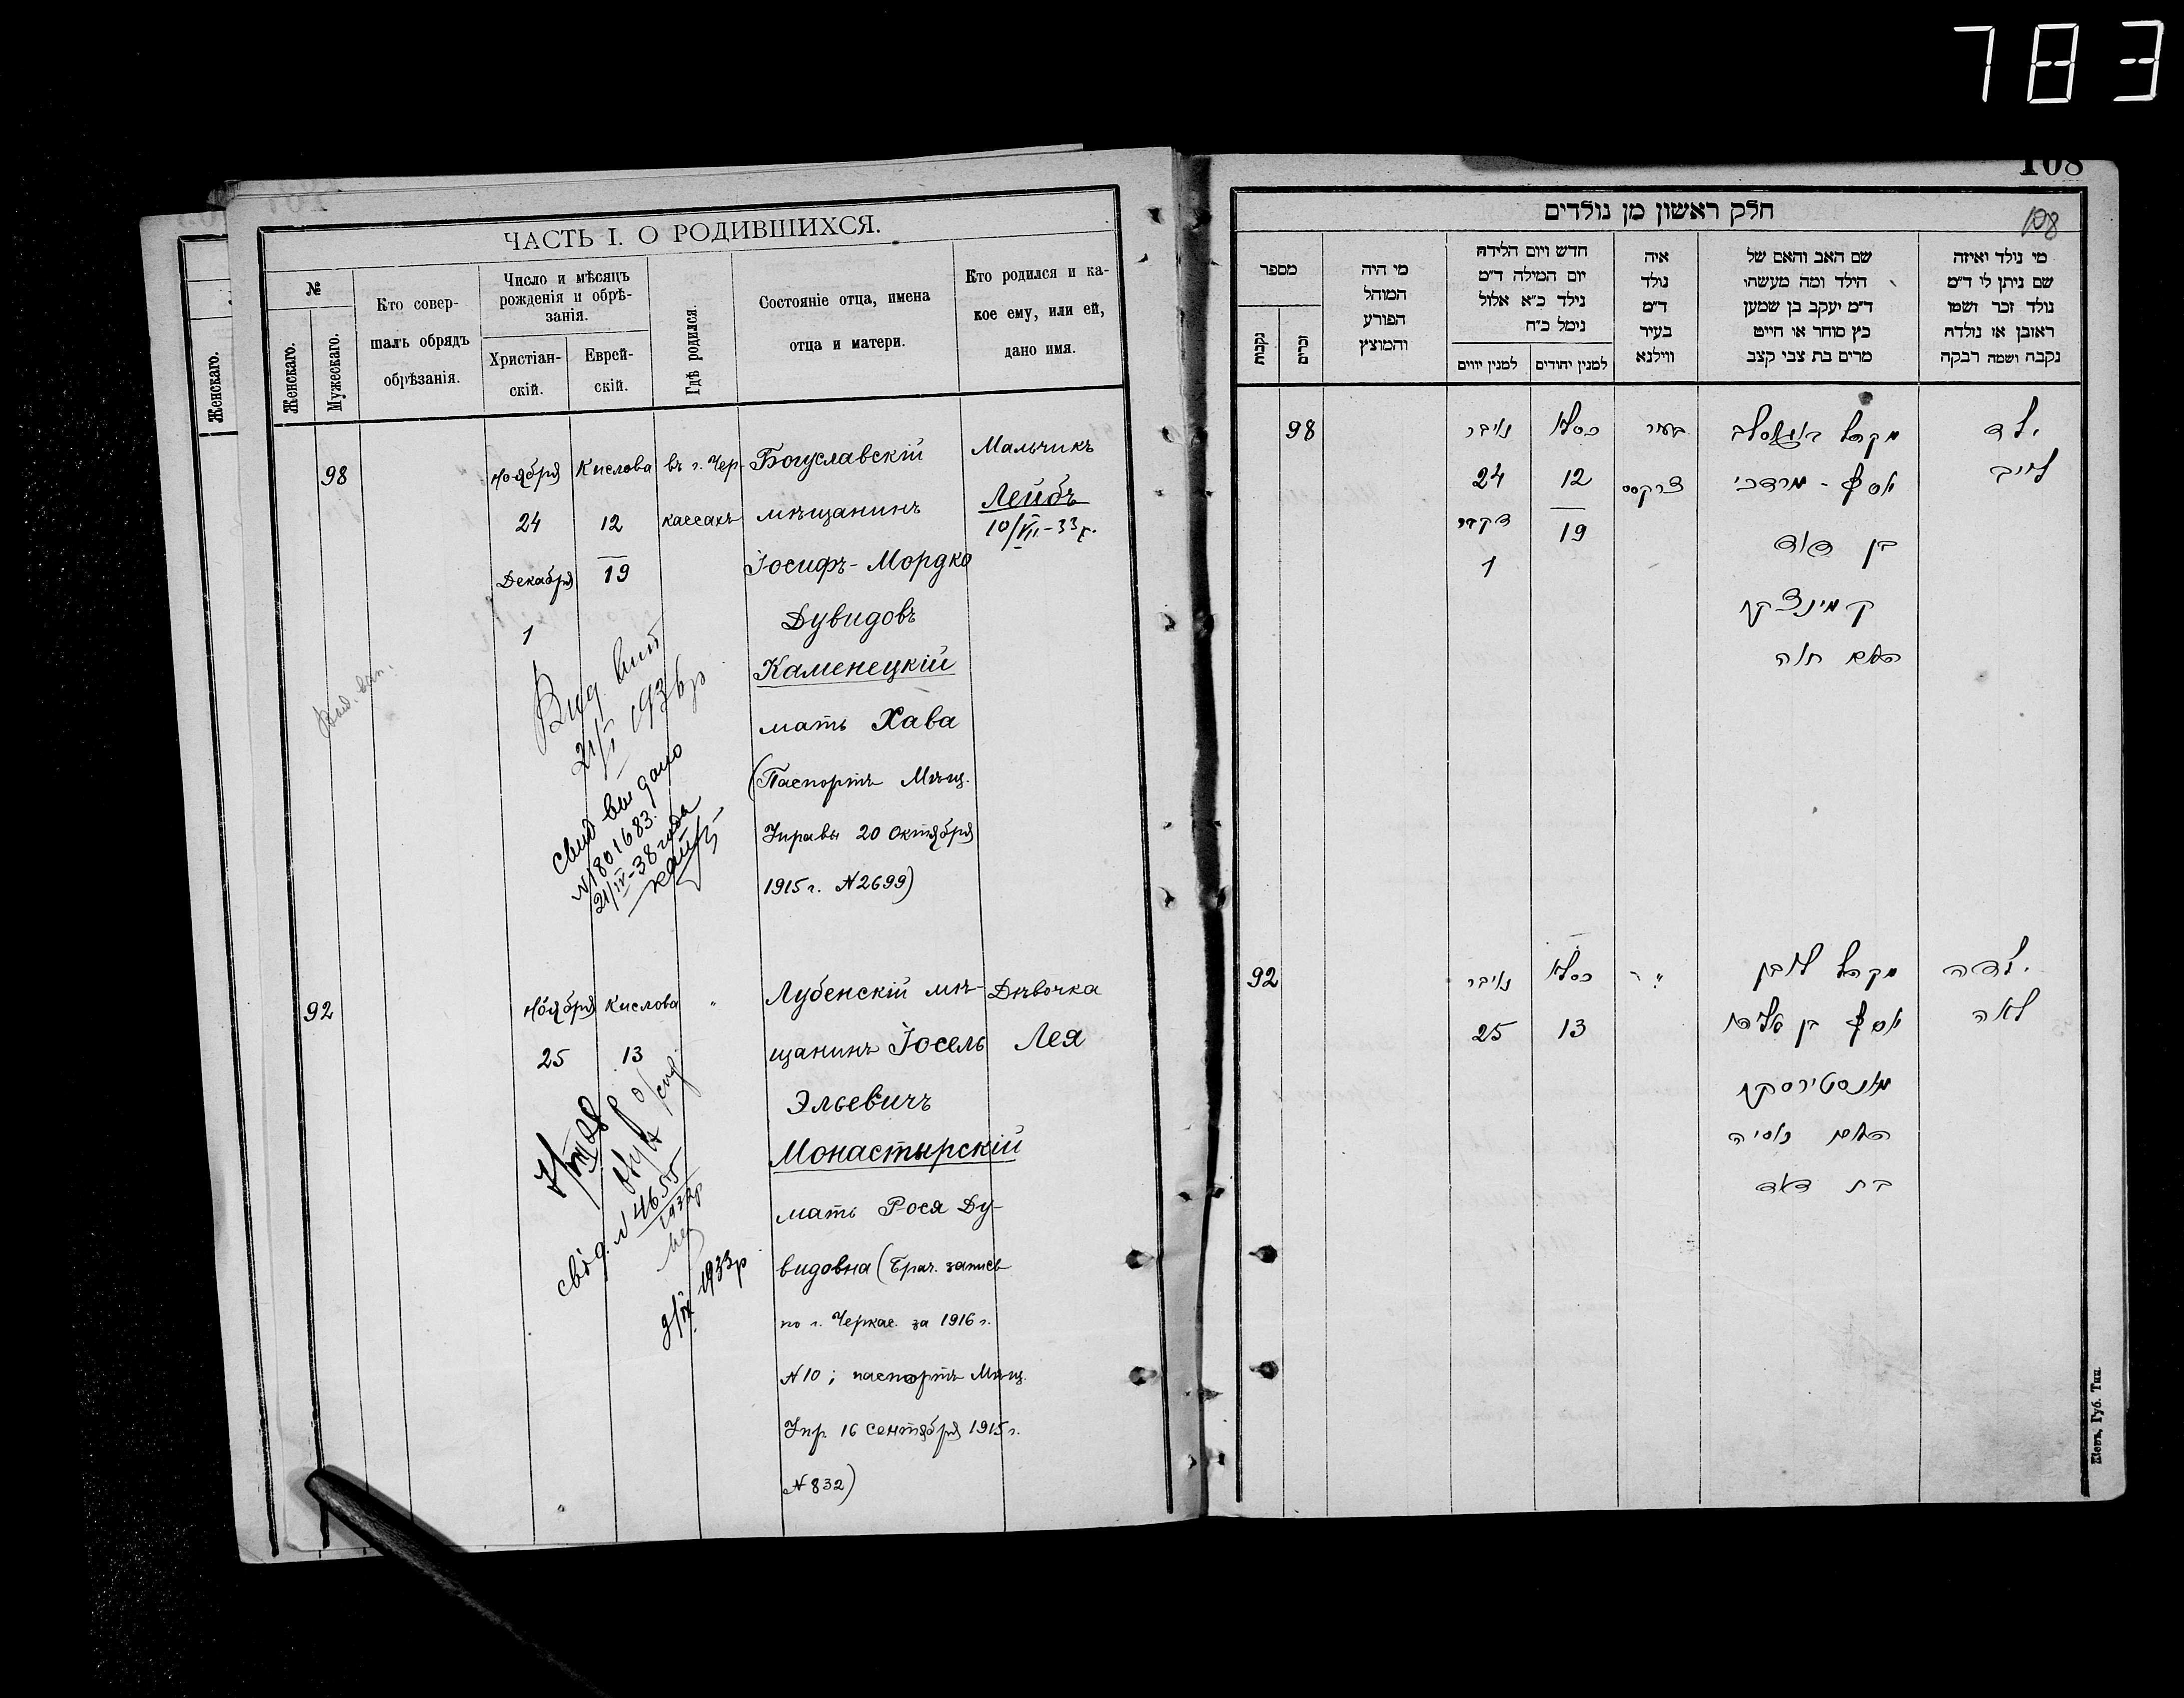 783
108
108
ЧАСТЬ I. О РОДИВШИХСЯ.
№
Женскаго.
Женскаго.
Мужескаго.
Кто совер-
шалъ обрядъ
обрѣзанія.
Число и мѣсяцъ
рожденія и обрѣ-
занія.
Христіан-
скій.
Еврей-
скій.
Гдѣ родился.
Состояніе отца, имена
отца и матери.
Кто родился и ка-
кое ему, или ей,
дано имя.
98
Ноября
24
Декабря
1
Кислова
12
19
въ г. Чер-
кассахъ
Богуславскій
мѣщанинъ
Іосифъ-Мордко
Дувидовъ
Каменецкій
мать Хава
(Паспортъ Мѣщ.
Управы 20 октября
1915 г. N2699)
Мальчикъ
Лейбъ
10/VII-33 г.
21/I 1936р
N 1801683.
21/IV-38 года
92
Ноября
25
Кислова
13
"
Лубенскій мѣ-
щанинъ Іосель
Эльевичъ
Монастырскій
мать Рося Ду-
видовна (Брач. запись
по г. Черкас. за 1916 г.
N10; паспортъ Мѣщ.
Упр. 16 сентября 1915 г.
N832)
Дѣвочка
Лея
свід. N 4655
1932р
1933р
חלק ראשון מן נולדים
מספר
נקבות
זכרים
מי היה
המוהל
הפורע
והמוצץ
חדש ויום הלידה
יום המילה ד"מ
נילד כ"א אלול
נימל כ"ח
למנין יווים
למנין יהודים
איה
נולד
ד"מ
בעיר
ווילנא
שם האב והאם של
הילד ומה מעשהו
ד"מ יעקב בן שמען
כץ סוחר או חייט
מרים בת צבי קצב
מי נולד ואיזה
שם ניתן לו ד"מ
נולד זכר ושמו
ראובן או נולדה
נקבה ושמה רבקה
98
24
1
כסלו
12
19
בעיר
יוסף - מרדכי
בן דוד
האם חוה
ילד
לייב
92
25
כסלו
13
"
האם
בת דוד
ילדה
לאה
Кіевъ, Губ. Тип.